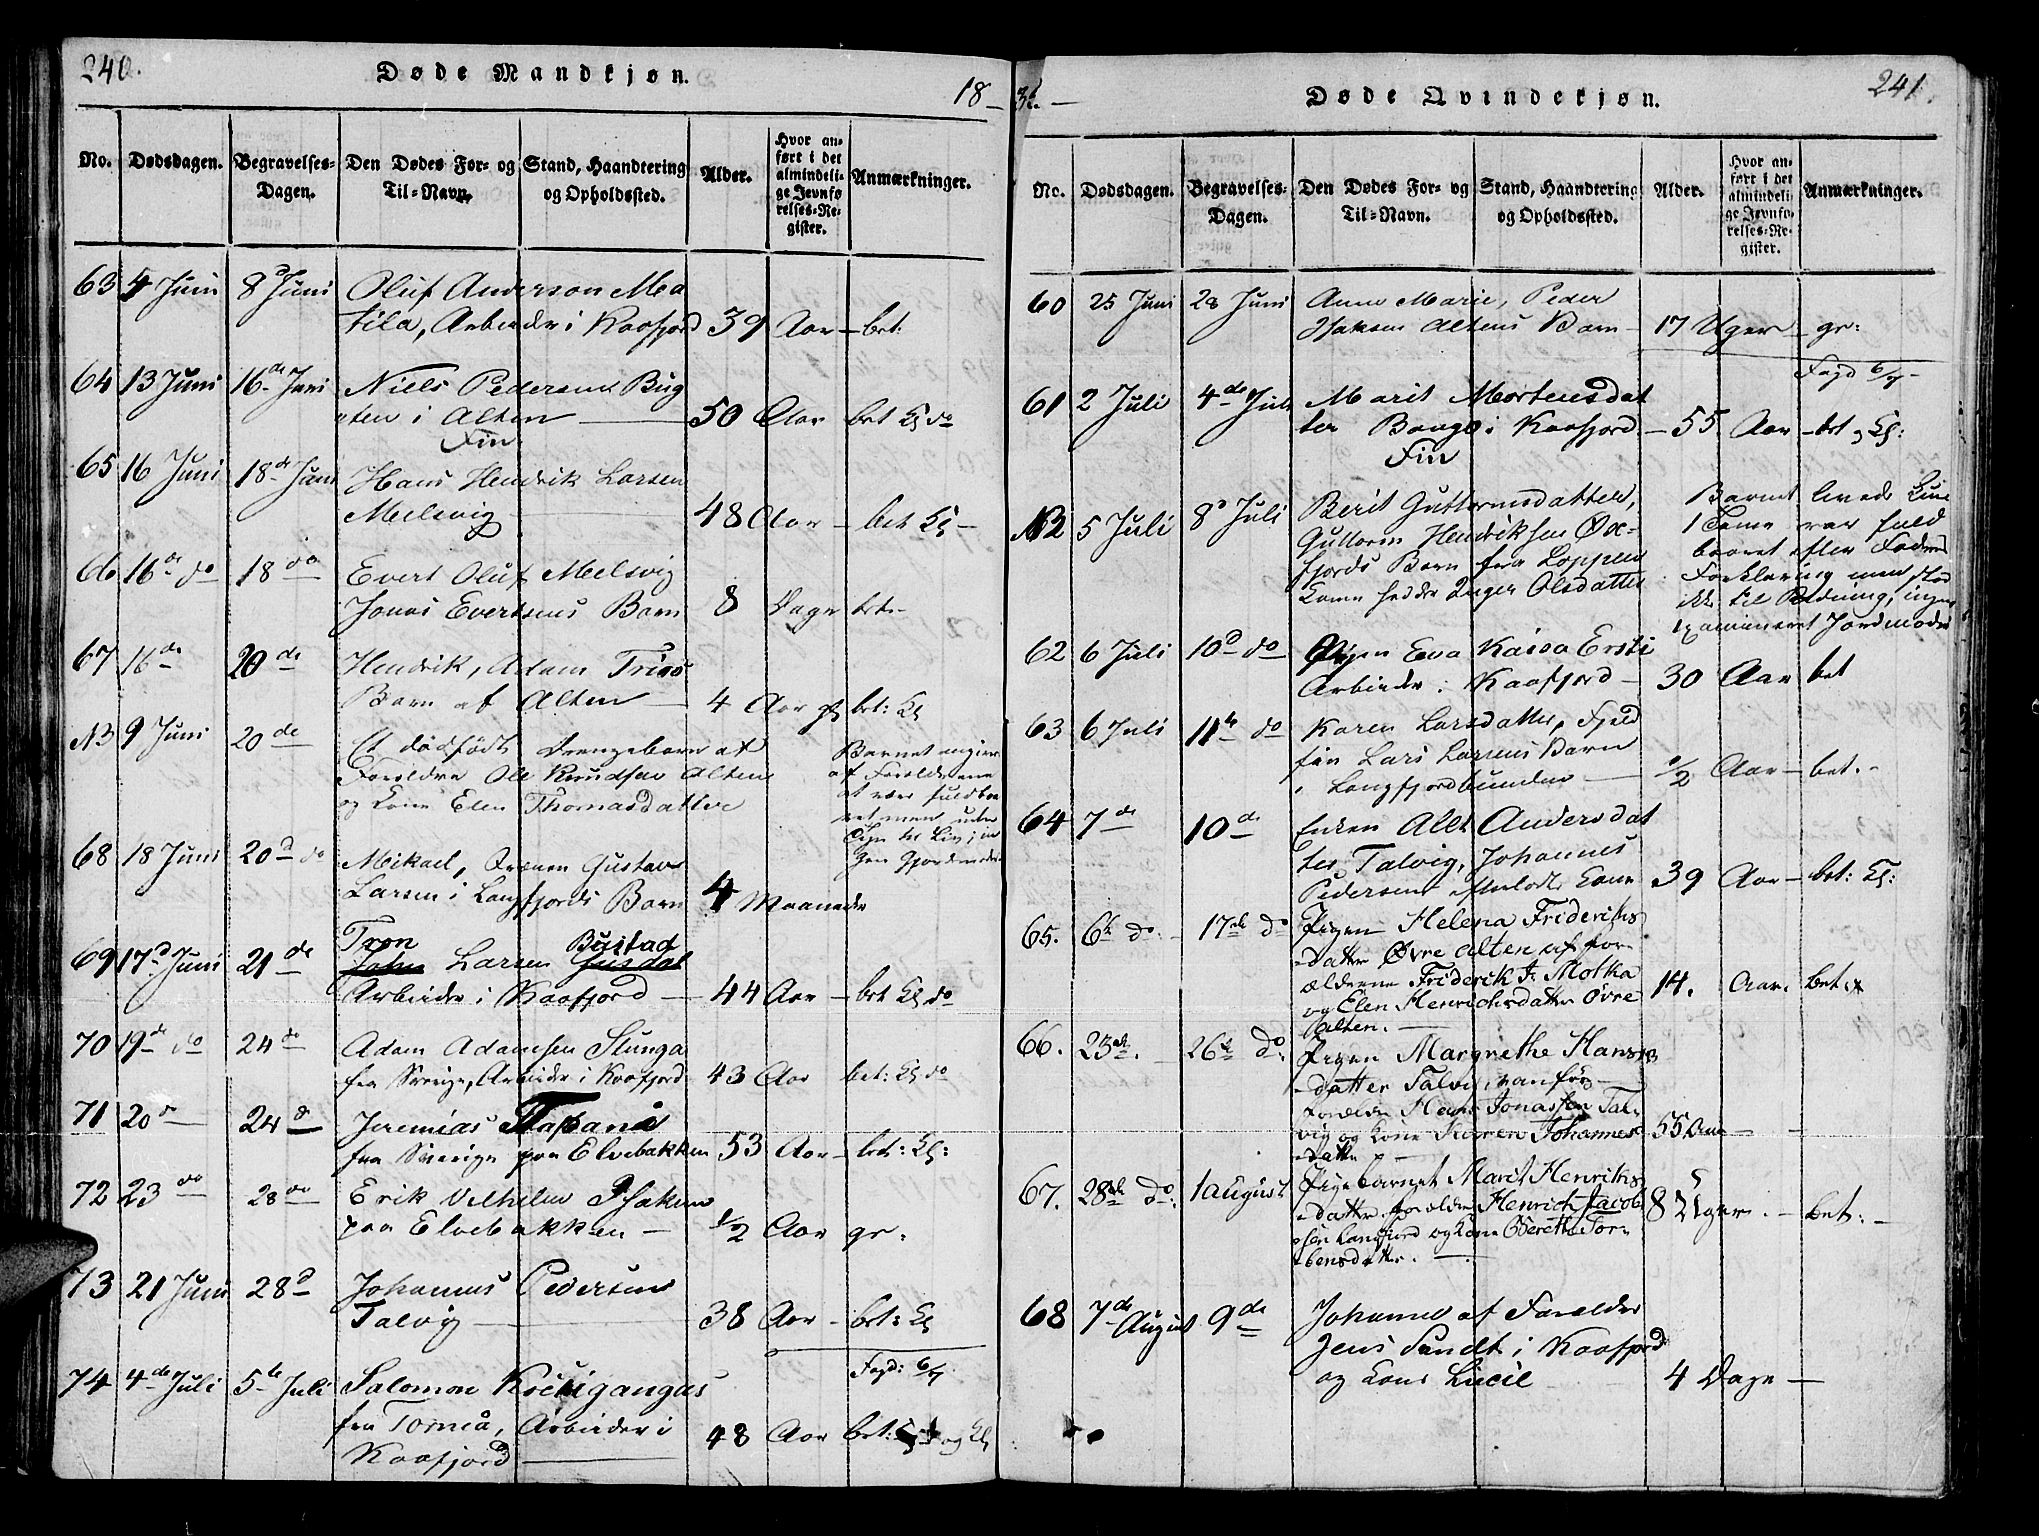 240.
Døde Mandkjøn.
18-
No.
Dødsdagen.
Begravelses-
Dagen.
Den Dødes For- og
Til-Navn.
Stand, Haandtering
og Opholdssted.
Alder.
Hvor an-
ført i det
almindeli-
ge Jevnfø
relses-Re-
gister.
Anmærkninger.
63 4 Juni 8d Juni Oluf Anderson Ma
tila, Arbeider i Kaafjord 39 Aar - bet:
64 13 Juni 16de Juni Niels Pedersens Bug
ten i Alten 50 Aar bet Kl do
Fin
65 16 Juni 18de Juni Hans Hendrik Larsen
Melsvig 48 Aar - bet Kl -
66 16de do 18 do Evert Oluf Melsvig
Jonas Evertsens Barn 8 Dage bet-
67 16de 20de Hendrik, Adam Friis
Barn af Alten 4 Aar bet: Kl
NB 9 Juni 20de Et dødfødt Drengebarn af
Forældre Ole Knudsen Alten
og Kone Elen Thomasdatter
Barnet angives
af Forældrene
at være fuldbaa
ret men uden
Tegn til Liv; in
gen Gjordmoder
68 18 Juni 20d do Mikael, Qvænen Gustav
Larsen i Langfjords Barn 4 Maaneder
Tron Bustad
69 17d Juni 21de John Larsen Gusdal
Arbeider i Kaafjord 44 Aar - bet Kl do
70 19de do 24de Adam Adamsen Stunga
fra Sverige, Arbeider i Kaafjord 43 Aar bet: Kl do
71 20d 24d Jeremias Tapani
fra Sverige paa Elvebakken 53 Aar - bet: Kl:
72 23 do 28 do Erik Vilhelm Isaksen
paa Elvebakken - 1/2 Aar gr:
73 21 Juni 28d Johannes Pedersen
Talvig 38 Aar - bet: Kl
Fogd: 6/7
74 4de Juli 5te Juli Salomon
fra Torneå, Arbeider i
Kaafjord 48 Aar bet: og Kl
36. -
Døde Qvindekjøn.
241.
No.
Dødsdagen.
Begravelses-
Dagen.
Den Dødes For- og
Til-Navn.
Stand, Haandtering
og Opholdssted.
Alder.
Hvor an-
ført i det
almindeli-
ge Jevnfø-
relses-Re-
gister.
Anmærkninger.
60 25 Juni 28 Juni Anne Marie, Peder
Isaksen Altens Barn - 17 Uger - gr:
Fogd 6/7 -
61 2 Juli 4de Juli Marit Mortensdat
ter Bongo i Kaafjord - 55 Aar - bet og Kl:
Fin
NB 5 Juli 8d Juli Berit Guttormsdatter,
Guttorm Hendriksen Øx-
fjords Barn fra Loppen
Kone hedder Inger Olsdatter
Barnet levede kun
1 Time var fuld
baaret efter Faderens
Forklaring men stod
ikke til Redning, ingen
examineret Jordmoder
62 6 Juli 10d do Pigen Eva Kaisa Ersti
Arbeider i Kaafjord - 30 Aar bet
63 6 Juli 11te do Karen Larsdatter, Fjeld
fin Lars Larsens Barn
i Langfjordbunden 1/2 Aar - bet. -
64 7de 10de Enken Alet Andersdat
ter Talvig, Johannes
Pedersens efterladte Kone 39 Aar - bet: Kl:
65. 6te do. - 17de do Pigen Helena Frideriks
-datter Øvre Alten af for-
ældrene Friderik I. Motka
og Elen Henrichsdatter Øvre
Alten. - 14. Aar. bet.
66. 23de. - 26de do: Pigen Margrethe Hans
-datter Talvig, vanfør -
forældre Hans Jonassen Tal-
vig og Kone Karen Johannes
-datter - 55 Aar - -
67. 28de do: 1 August Pigebarnet Marit Henriks
-datter forældre Henrich Jacob
-sen Langfjord og Kone Berethe Tor-
bensdatter. - 8 Uger. - bet: -
68 7de August 9de Johanne af Forældre
Jens Sandt i Kaafjord
og Kone Lucil 4 Dage -